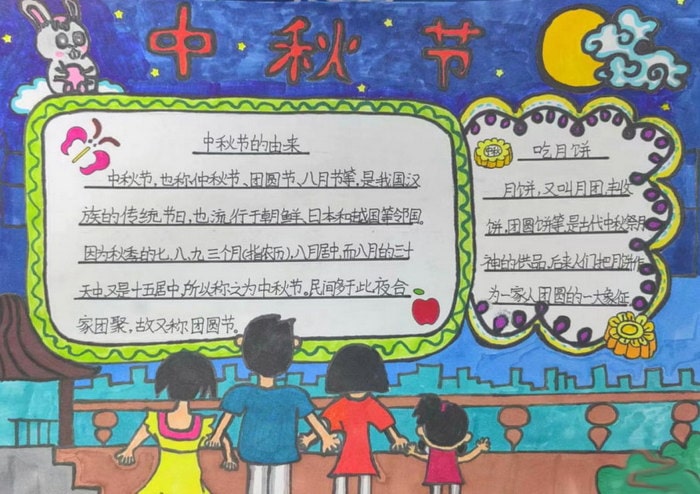 中秋节
中秋节的由来
中秋节,也称仲秋节、团圆节、八月节等,是我国汉
族的传统节日,也流行于朝鲜、日本和越国等邻国。
因为秋季的七、八、九三个月(指农历),八月居中,而八月的三十
天中又是十五居中,所以称之为中秋节。民间多于此夜合
家团聚,故又称团圆节。
吃月饼
月饼,又叫月团,丰收
饼,团圆饼等,是古代中秋祭月
神的供品,后来人们把月饼作
为一家人团圆的一大象征